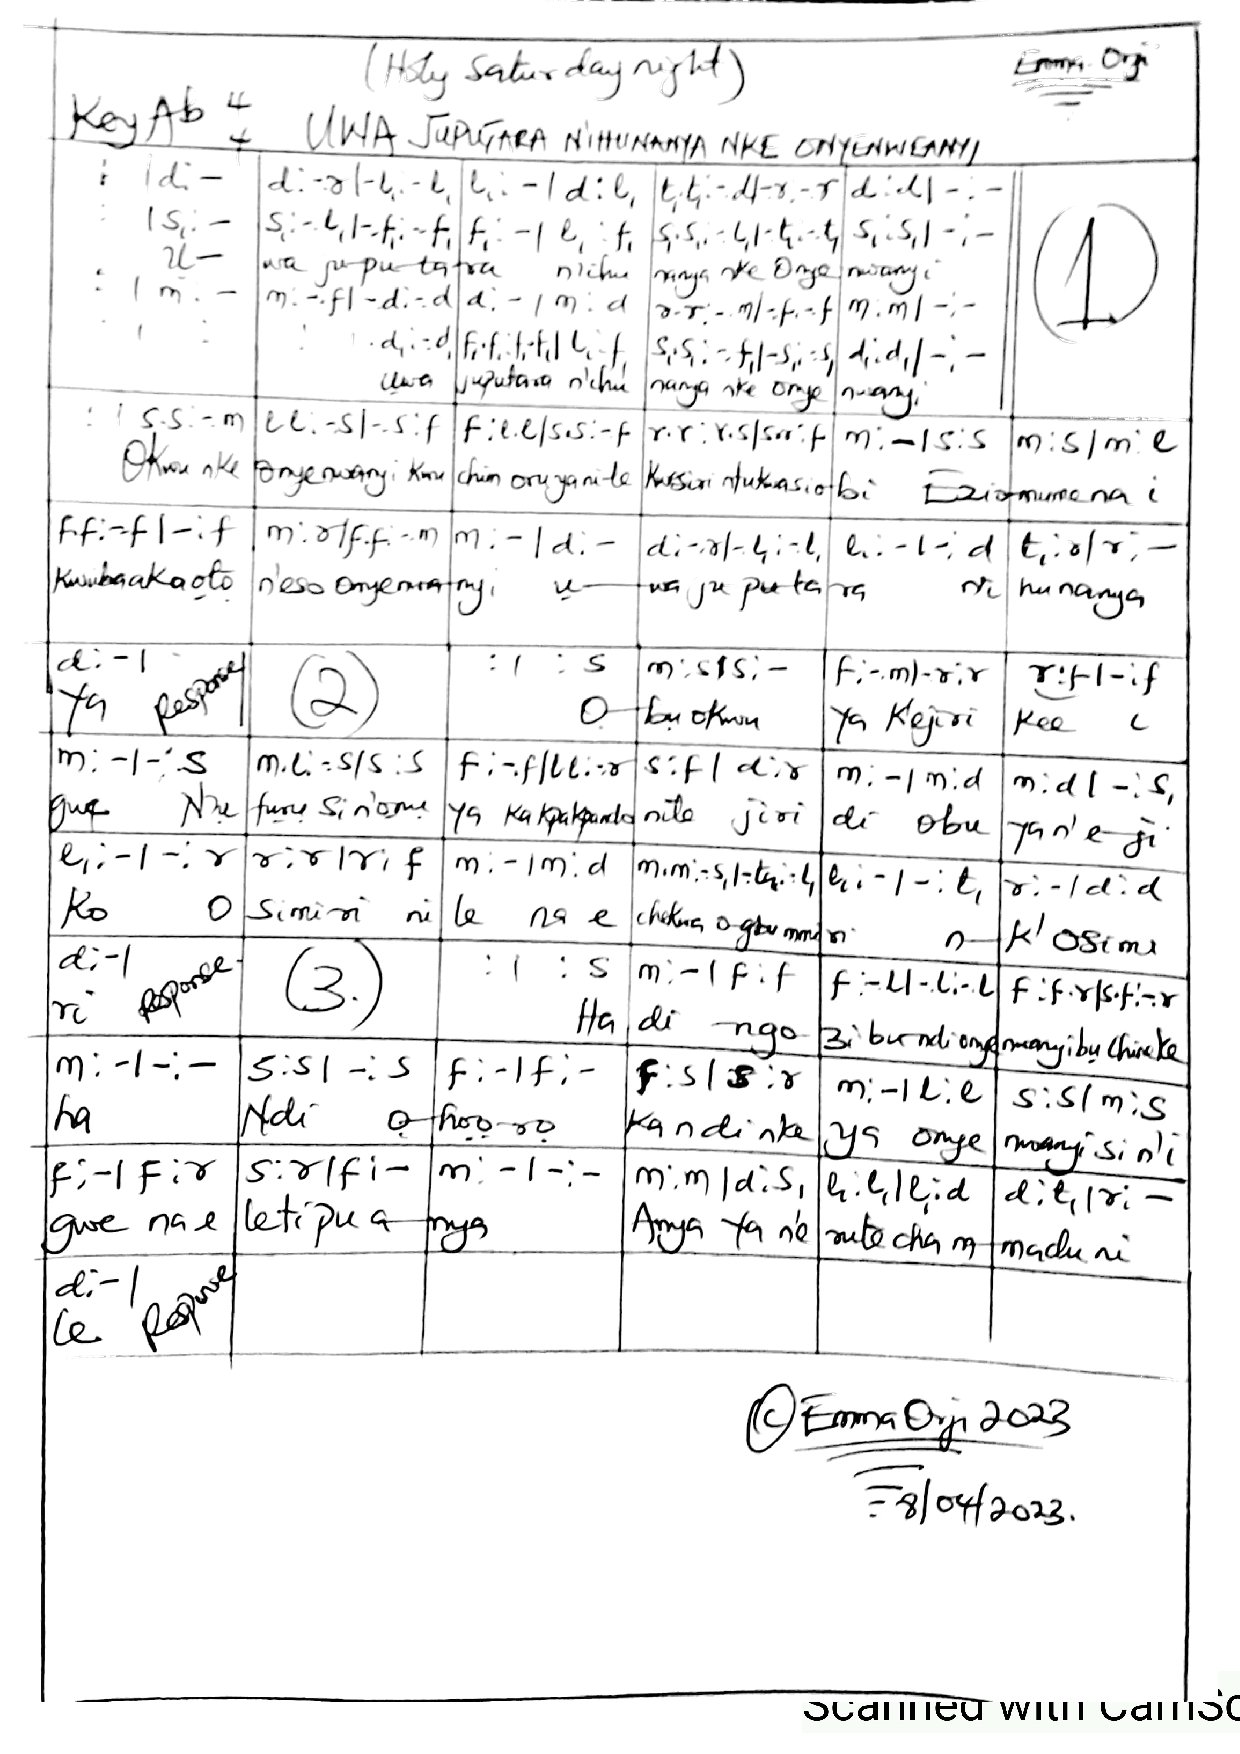 (Holy Saturday night)
Emma Orji
Key Ab 4/4 UWA JUPUTARA N'IHUNANYA NKE ONYENWEANYI
: | d:- | d:-.r|-.l₁:-.l₁ | l₁:-|d:l₁ | t₁.t₁:-.d|-.r:-.r | d:d|-:-
: | s₁:- | s₁:-.l₁|-.f₁:-.f₁ | f₁:-|l₁:f₁ | s₁.s₁:-.l₁|-.t₁:-.t₁ | s₁:s₁|-:-
U— wa ju pu-ta ra n'ihu nanya nke Onye nwanyi
: | m:- | m:-.f|-.d:-.d | d:-|m:d | r.r:-.m|-.f:-.f | m:m|-:-
: | : | .d₁:-.d₁ | f₁.f₁:f₁.f₁|l₁:f₁ | s₁.s₁:-.f₁|-.s₁:-.s₁ | d₁:d₁|-:-
Uwa juputara n'ihu nanya nke Onye nwanyi
1
: | s.s:-.m | l.l:-.s|-.s:f | f:l.l|s.s:-.f | r.r:r.s|s.r:f | m:-|s:s | m:s|m:l
Okwu nke Onyenwanyi kwu chim oru ya ni-le kwesiri ntukwasiobi Ezi omume na i
f.f:-.f|-:f | m:r|f.f:-.m | m:-|d:- | d:-.r|-.l₁:-.l₁ | l₁:-|-:d | t₁:r|r:-
Kwubaaka oto n'eso Onyenwa nyi u— wa ju pu ta ra n'i hu nanya
d:-|
Ya Response
2
: | :s | m:s|s:- | f:-.m|-.r:r | r:f|-:f
O bu okwu ya Ke jiri Kee i
m:-|-:s | m.l:-.s|s:s | f:-.f|l.l:-.r | s:f|d:r | m:-|m:d | m:d|-:s₁
gwe N'ile furu si n'onu ya ka kpakpando nile jiri di obu ya n'e-ji
l₁:-|-:r | r:r|r:f | m:-|m:d | m.m:-.s₁|-.t₁:-.l₁ | l₁:-|-:t₁ | r:-|d:d
Ko O simiri ni le na e chekwa ogbu mmiri n— K'Osimi
d:-|
ri Response
3.
: | :s | m:-|f:f | f:-.l|-.l:-.l | f:f.r|s.f:-.r
Ha di ngo zi bu ndi onyenwanyi bu Chineke
m:-|-:- | s:s|-:s | f:-|f:- | f:s|s:r | m:-|l:l | s:s|m:s
ha Ndi o-hoo-ro Ka ndi nke ya onye nwanyi si n'i
f:-|f:r | s:r|f:- | m:-|-:- | m:m|d:s₁ | l₁:l₁|l₁:d | d:t₁|r:-
gwe na e leti pu a-nya Anya ya n'e rute cha m madu ni
d:-|
le Response
© Emma Orji 2023
8/04/2023.
Scanned with CamSc